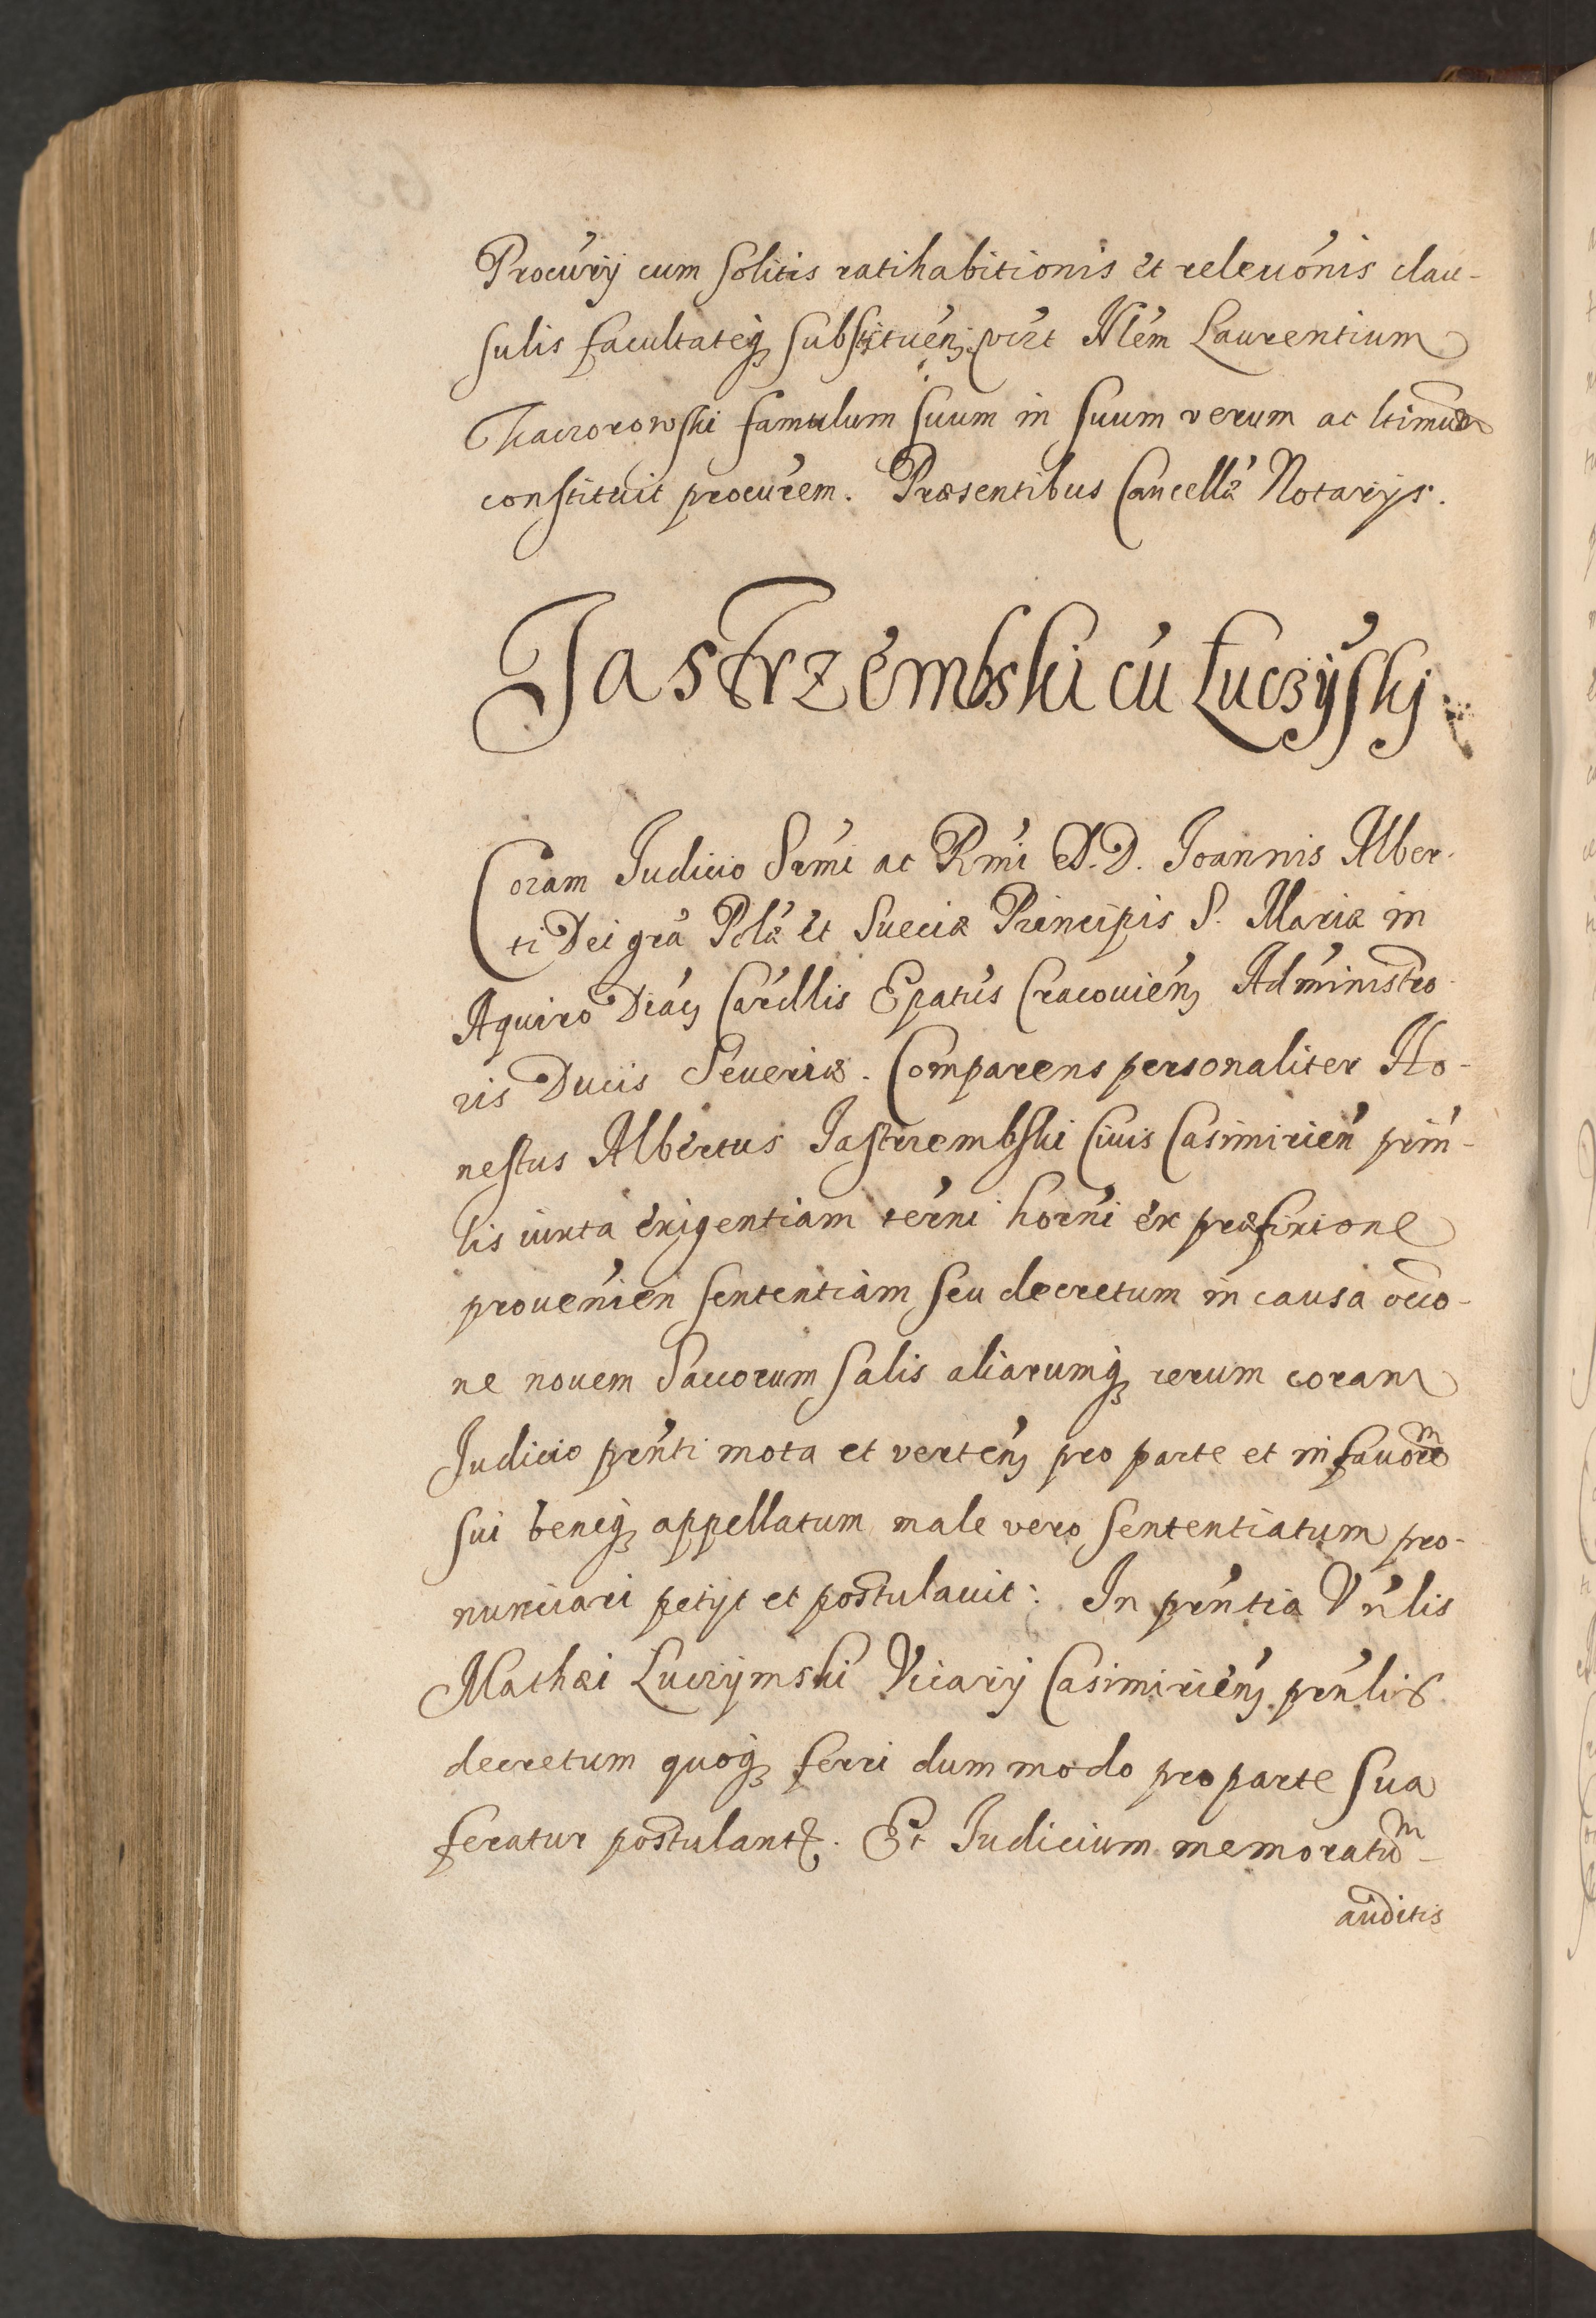 Procur̃ij cum solitis ratihabitionis et releuõnis clau-
sulis facultateq₃ substituen₃ vizt Nlem Laurentium
famulum suum in suum verum ac ltimum
constituit procurem. Præsentibus Cancellæ Notarijs.
Jastrzembski cũ Łuczÿskj
Coram Judicio Sermi ac Rmi D.D. Joannis Alber-
ti Dei gra Polæ et Sueciæ Principis S. Mariæ in
Aquiro Diac Cardllis Epatus Cracouien₃ Administro-
ris Ducis Seueriæ. Comparens personaliter Ho-
nestus Albertus Jastrzembski Ciuis Casimirien prin-
lis iuxta exigentiam terni horni ex præfixione
prouenien sententiam seu decretum in causa occo-
ne nouem Saccorum salis aliarumq₃ rerum coram
Judicio prnti mota et verten₃ pro parte et in fauorem
sui beneq₃ appellatum male vero sententiatum pro-
nunciari petijt et postulauit: In prntia Vnlis
Mathæi Luczymski Vicarij Casimirien₃ prnlis
decretum quoq₃ ferri dummodo pro parte sua
feratur postulantꝭ. Et Judicium memoratum
auditis